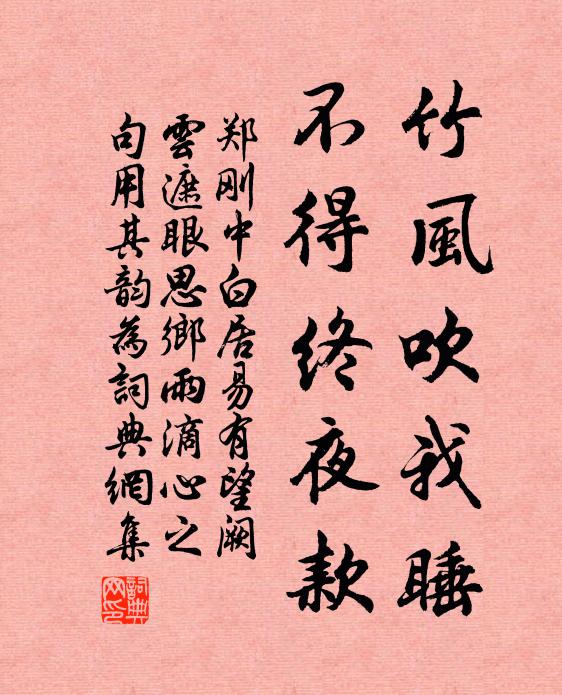 竹風吹我睡
不得終夜款
郑刚中白居易有望阙
雲遮眼思鄉雨滴心之
句用其韵為詞典網集
詞典
网印